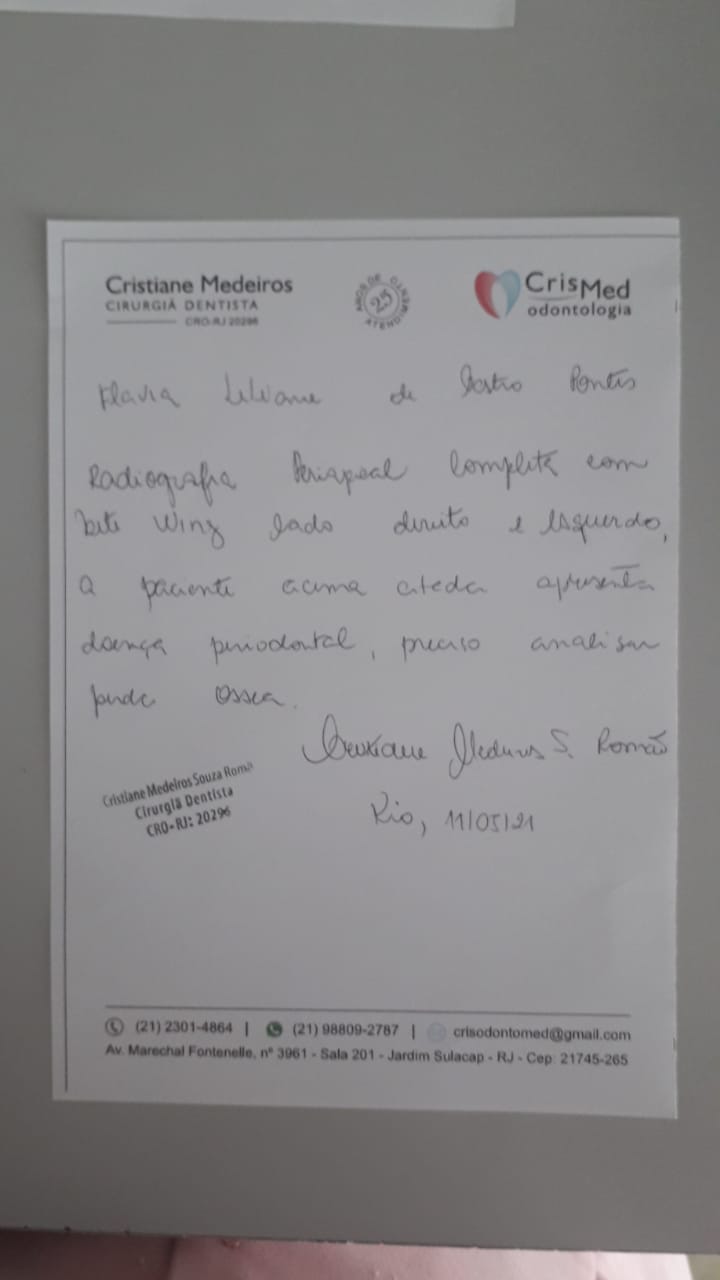 Cristiane Medeiros
CIRURGIÃ DENTISTA
CRO-RJ 20296
ANOS DE ATENDIMENTO
25
CrisMed
odontologia
Flavia Liliane de Castro Pontes
Radiografia Periapcal Completa com
bite Wing lado direito e esquerdo,
a paciente acima citeda apresenta
doença periodontal, preciso analisar
perda ossea.
Cristiane Medeiros S. Romão
Rio, 11/05/21
Cristiane Medeiros Souza Roma
Cirurgiã Dentista
CRO-RJ: 20296
(21) 2301-4864 | (21) 98809-2787 | crisodontomed@gmail.com
Av. Marechal Fontenelle, nº 3961 - Sala 201 - Jardim Sulacap - RJ - Cep: 21745-265